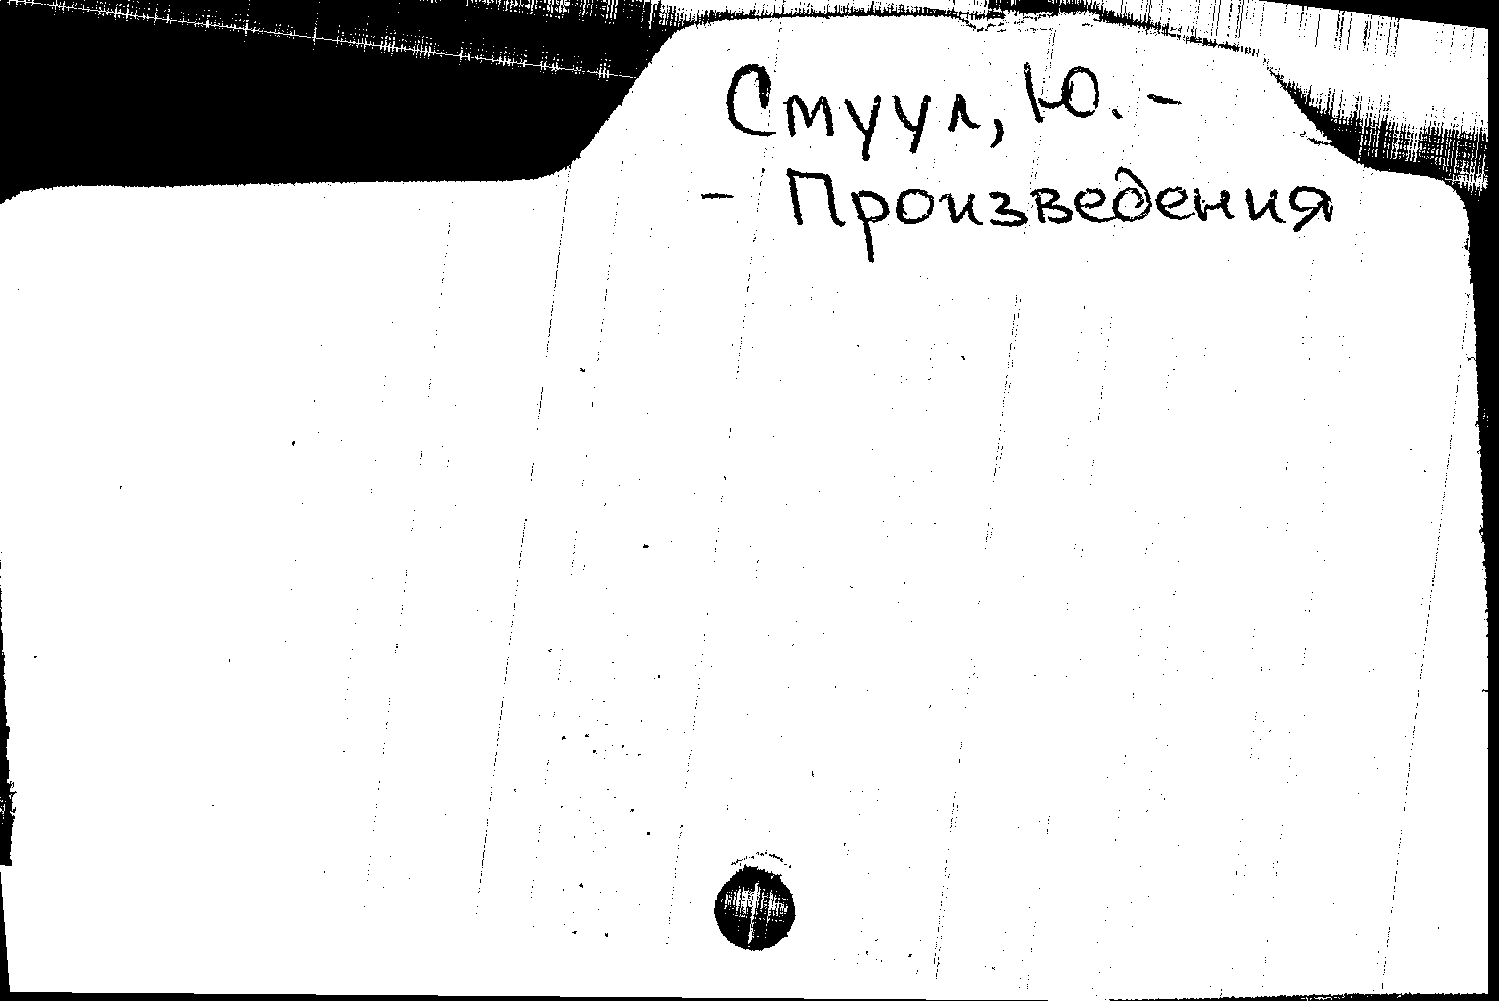 Смуул, Ю. -
- Произведения